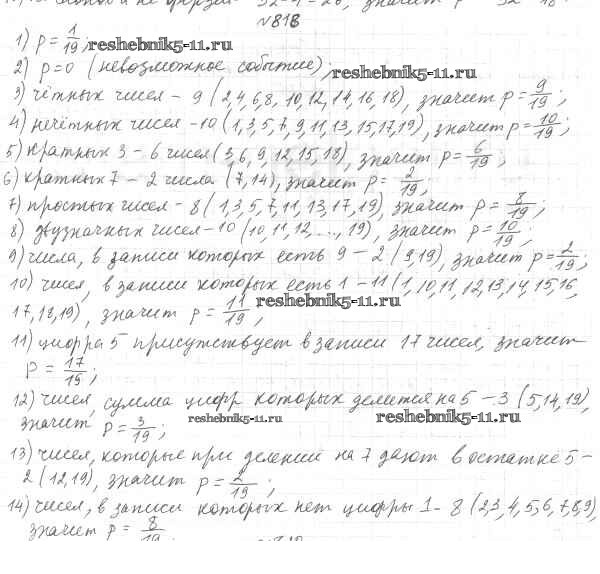 значит р =
№818
1) р = 1/19; reshebnik5-11.ru
2) р=0 (невозможное событие); reshebnik5-11.ru
3) чётных чисел – 9 (2,4,6,8, 10,12,14,16,18), значит р = 9/19;
4) нечётных чисел -10 (1,3,5,7,9,11,13,15,17,19), значит р = 10/19;
5) кратных 3 – 6 чисел (3,6,9,12,15,18), значит р = 6/19;
6) кратных 7 – 2 числа (7,14), значит р = 2/19;
7) простых чисел – 8 (1,3,5,7,11,13,17,19), значит р = 8/19;
8) двузначных чисел -10 (10,11,12, ..., 19), значит р = 10/19;
9) числа, в записи которых есть 9 – 2 (9,19), значит р = 2/19;
10) чисел, в записи которых есть 1 – 11 (1,10,11,12,13,14,15,16,
17,18,19), значит р = 11/19; reshebnik5-11.ru
11) цифра 5 присутствует в записи 17 чисел, значит
р = 17/19;
12) чисел, сумма цифр которых делится на 5 – 3 (5,14,19),
значит р = 3/19; reshebnik5-11.ru reshebnik5-11.ru
13) чисел, которые при делении на 7 дают в остатке 5 –
2 (12,19), значит р = 2/19;
14) чисел, в записи которых нет цифры 1 – 8 (2,3,4,5,6,7,8,9),
значит р = 8/19.